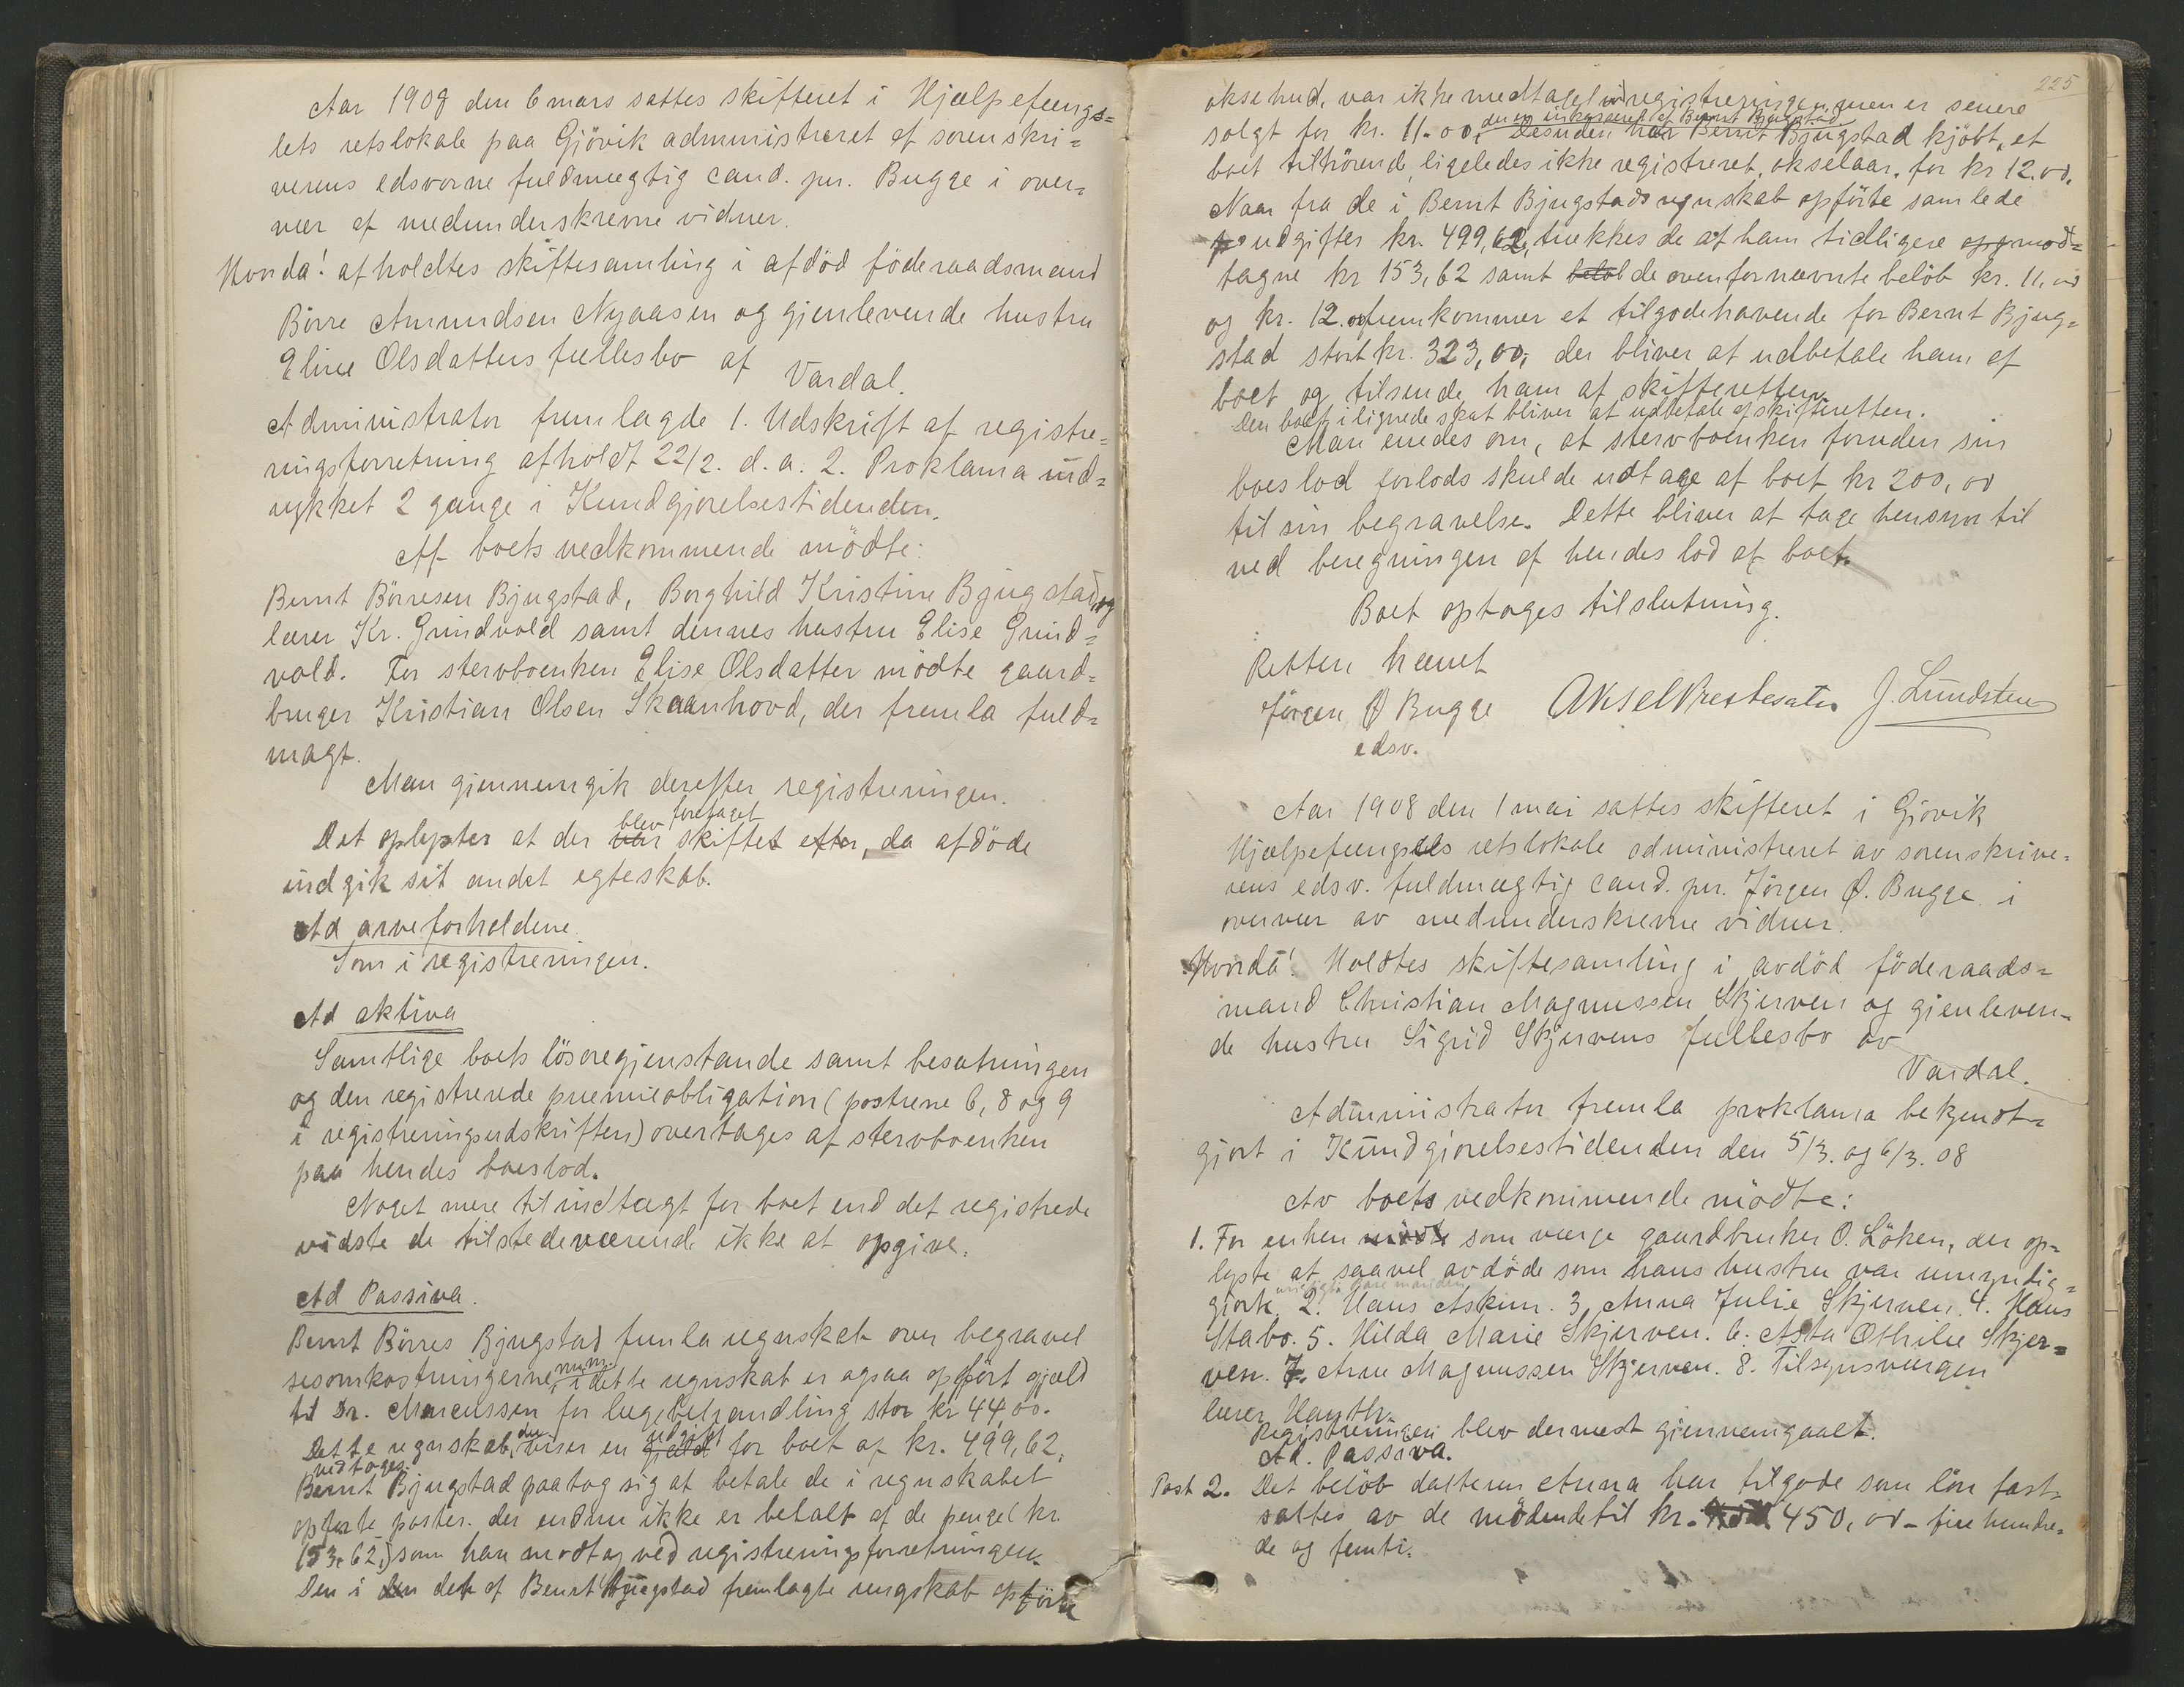 Aar 1908 den 6 mars sattes skifteret i Hjælpefængs=
lets retslokale paa Gjövik administreret af sorenskri=
verens edsvorne fuldmægtig cand. jur. Bugge i over=
vær af medunderskrevne vidner.
Hvorda! afholdtes skiftesamling i afdöd föderaadsmand
Börre Amundsen Nyaasen og gjenlevende hustru
Eline Olsdatters fællesbo af
Vardal.
Administrator fremlagde 1. Udskrift af registre=
ringsforretning afholdt 22/2. d. a. 2. Proklama ind=
rykket 2 gange i Kundgjörelsestidenden.
Af boets vedkommende mödte:
Bernt Börresen Bjugstad, Borghild Kristine Bjugstad, og
lærer Kr. Grindvold samt dennes hustru Elise Grind=
vold. For stervboenken Elise Olsdatter mödte gaard=
bruger Kristian Olsen Skaanhovd, der fremla fuld=
magt.
Man gjennemgik derefter registreringen.
blev foretaget
Det oplyster at der var skiftet efter, da afdöde
indgik sit andet egteskab.
Ad arveforholdene.
Som i registreringen.
Ad aktiva
Samtlige boets lösöregjenstande samt besætningen
og den registrerede præmieobligation (posterne 6, 8 og 9
i registreringsudskriften) overtages af stervboenken
paa hendes boeslod.
Noget mere til indtægt for boet end det registrede
vidste de tilstedeværende ikke at opgive.
Ad Passiva.
Bernt Börres Bjugstad fremla regnskab over begravel
sesomkostningerne m.m. i dette regnskab er ogsaa opfört gjæld
til Dr. Marcussen for lægebehandling stor kr 44,00.
der udgift
Dette regnskab, viser en gjæld for boet af kr. 499,62.
vedtoges.
Bernt Bjugstad paatog sig at betale de i regnskabet
opförte poster. der endnu ikke er betalt af de penge (kr.
153,62,) som han modtog ved registreringsforretningen.
Den i den det af Bernt Bjugstad fremlagte rengskab opförte
225
oksehud, var ikke medtaget ved registreringen, men er senere
den er inkasseret af Bernt Bjugstad
solgt for kr. 11.00. Desuden har Bernt Bjugstad kjöbt, et
boet tilhörende, ligeledes ikke registreret, okselaar, for kr 12.00.
Naar fra de i Bernt Bjugstads regnskab opförte samlede
udgifter kr. 499,62, trækkes de af ham tidligere opg mod=
tagne kr 153,62 samt beløb de ovenfornævnte belöb kr. 11,00
og kr. 12.00 fremkommer et tilgodehavende for Bernt Bjug=
stad stort kr. 323,00, der bliver at udbetale ham af
boet og tilsende ham af skifteretten.
Den boet ilignede skat bliver at udbetale af skifteretten.
Man enedes om, at stervboenken foruden sin
boeslod forlods skulde udtage af boet kr 200,00
til sin begravelse. Dette bliver at tage hensyn til
ved beregningen af hendes lod af boet.
Boet optages til slutning.
Retten hævet
Jörgen Ø Bugge Aksel Prestesæter J. Lundsten
edsv.
Aar 1908 den 1 mai sattes skifteret i Gjövik
Hjælpefængsels retslokale administreret av sorenskrive=
rens edsv. fuldmægtig cand. jur. Jörgen Ø. Bugge i
overvær av medunderskrevne vidner.
Hvorda! Holdtes skiftesamling i avdöd föderaads=
mand Christian Magnussen Skjerven og gjenleven=
de hustru Sigrid Skjervens fællesbo av
Vardal.
Administrator fremla proklama bekjendt=
gjort i Kundgjörelsestidenden den 5/3. og 6/3. 08
Av boets vedkommende mödte:
1. For enken mödte som værge gaardbruker O. Löken, der op=
lyste at saavel avdöde som hans hustru var umyndig=
gjort. 2. Hans Askim. 3. Anna Julie Skjerven. 4. Hans
Stabo. 5. Hilda Marie Skjerven. 6. Asta Othilie Skjer=
ven. 7. Arne Magnussen Skjerven. 8. Tilsynsværgen
lærer Hauth.
Registreringen blev dernæst gjennemgaaet.
Ad. Passiva.
Post 2. Det belöb datteren Anna har tilgode som lön fast=
sattes av de mödende til kr. 450,00 - fire hundre=
de og femti.